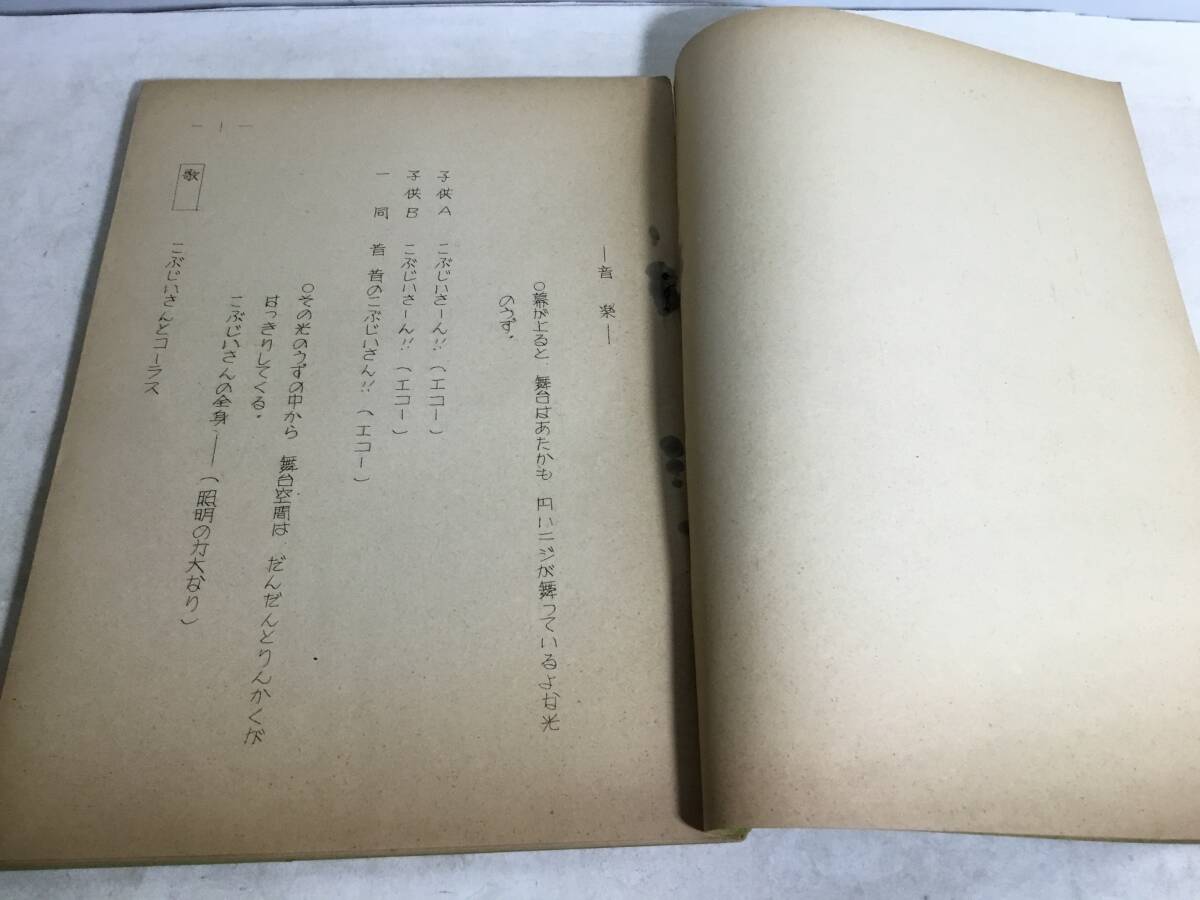 —音 楽—
○幕が上ると、舞台はあたかも 円いニジが舞っているよな光
のうず。
子供A こぶじいさーん!!(エコー)
子供B こぶじいさーん!!(エコー)
一 同 昔 昔のこぶじいさん!!(エコー)
○その光のうずの中から 舞台空間は、だんだんとりんかくが
はっきりしてくる。
こぶじいさんの全身——(照明の力大なり)
歌 こぶじいさんとコーラス
— 1 —